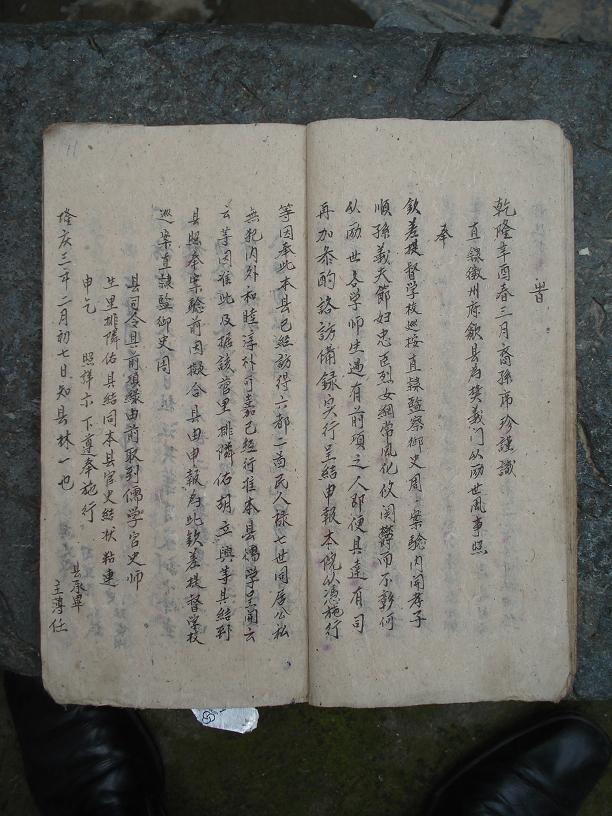 旹
乾隆辛酉春三月裔孫席珍謹識
直隸徽州府歙縣為奬義門以勵世風事照
奉
欽差提督學校巡按直隸監察御史周 案驗內開孝子
順孫義夫節婦忠臣烈女綱常風化攸関而不彰何
以勵世各學師生遇有前項之人即便具達有司
再加叅酌諮訪備録实行呈結申報本院以憑施行
等因奉此本县已經訪得六都二啚民人禄七世同居公私
無犯内外和睦 已經行准本县儒学呈開云
云等因准此及据該管里排隣佑胡立興等具結到
县照奉案驗前因擬合具由申報為此欽差提督学校
巡案直隸監御史周
县司合具前項縁由前取到儒学官吏師
生里排隣佑具結同本县官吏結状粘連
申乞 照詳示下遵奉施行
隆庆三年二月初七日知县林一也
县丞畢
主簿任
11